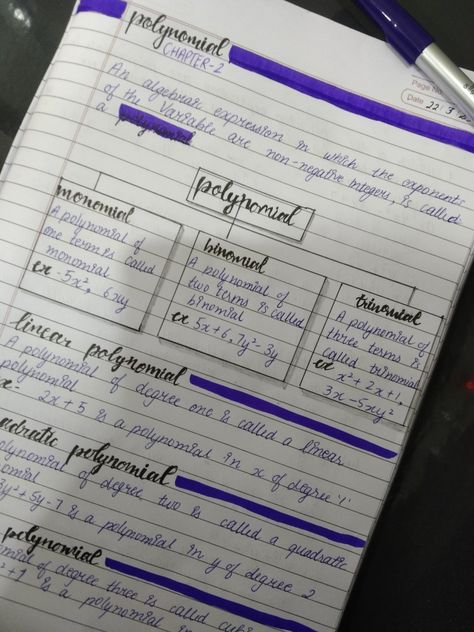 polynomial
CHAPTER-2
Page No.
Date 22 3
An algebraic expression in which the exponents
of the variable are non-negative integers, is called
a polynomial
polynomial
monomial
A polynomial of
one term is called
monomial
ex -5x², 6xy
binomial
A polynomial of
two terms is called
binomial
ex 5x+6, 7y²-3y
trinomial
A polynomial of
three terms is
called trinomial
ex x²+2x+1,
3x-5xy²
linear polynomial
A polynomial of degree one is called a linear
polynomial
2x+5 is a polynomial in x of degree '1'
polynomial
of degree two is called a quadratic
3y²+5y-7 is a polynomial in y of degree 2
polynomial
of degree three is called
is a polynomial in